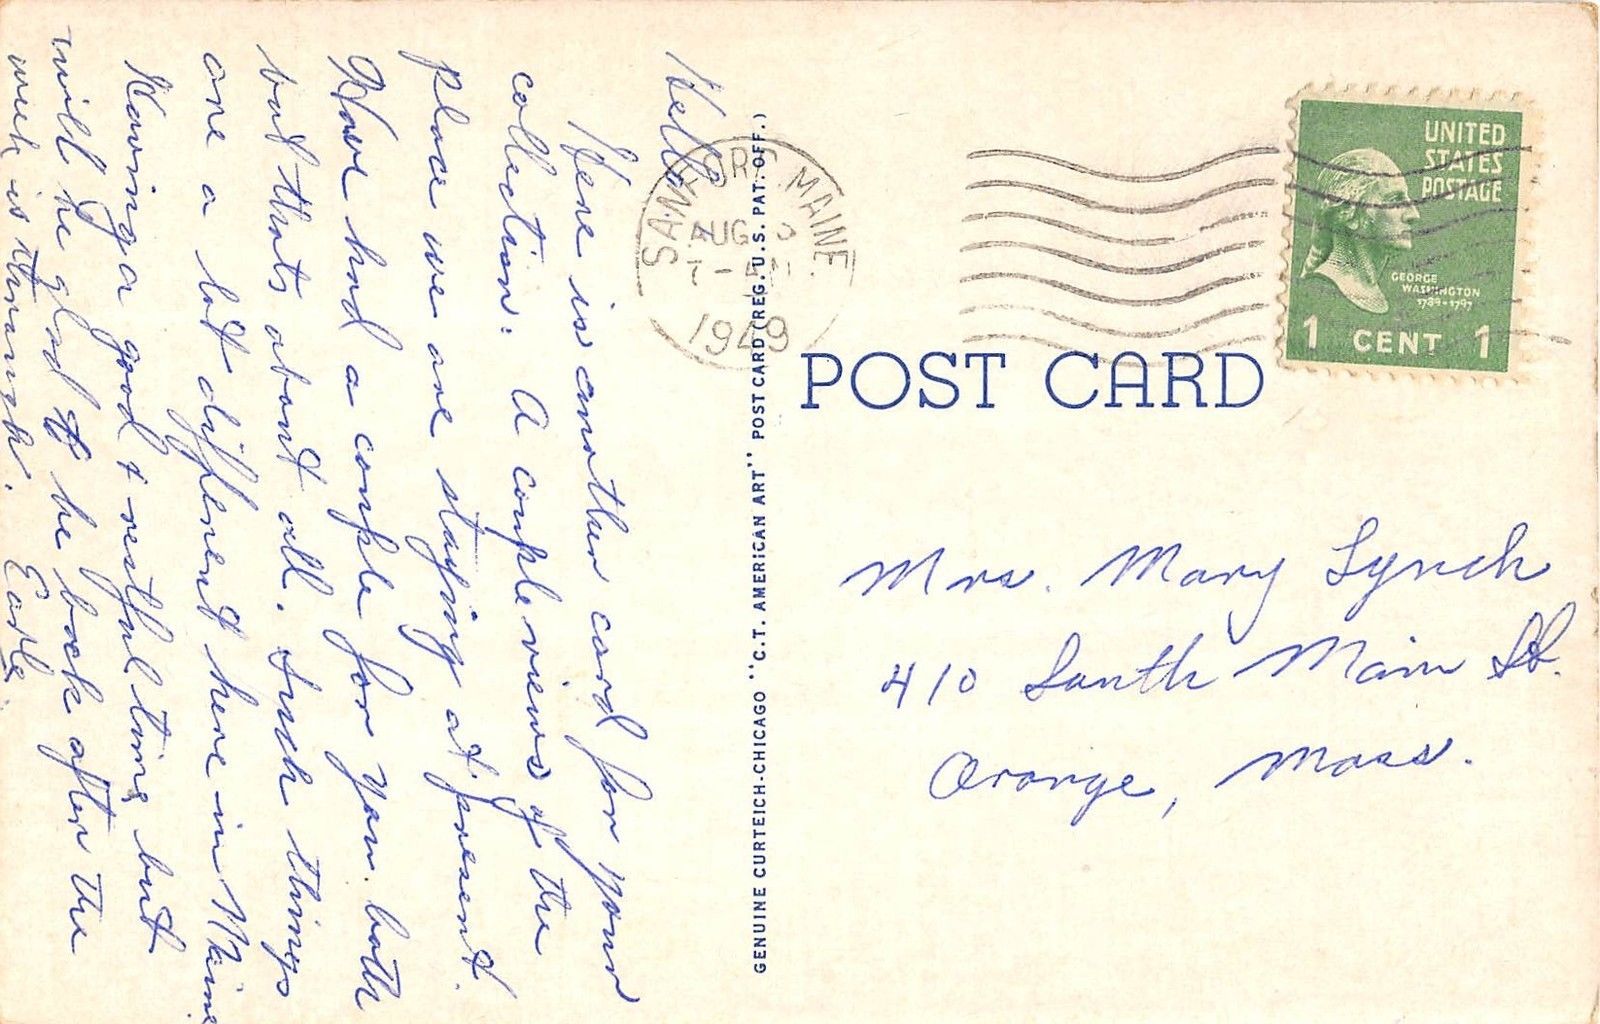 Hello
Here is another card for your
collection. A couple views of the
place we are staying at present.
Have had a couple for you both
but thats about all. Such things
are a lot different here in Maine
Having a good & restful time but
will be glad to be back after the
week is through. Earle.
SANFORD, MAINE.
AUG
1949
GENUINE CURTEICH-CHICAGO "C.T. AMERICAN ART" POST CARD (REG. U.S. PAT. OFF.)
UNITED
STATES
POSTAGE
GEORGE
WASHINGTON
1789-1797
1 CENT 1
POST CARD
Mrs. Mary Lynch
410 South Main St.
Orange, Mass.